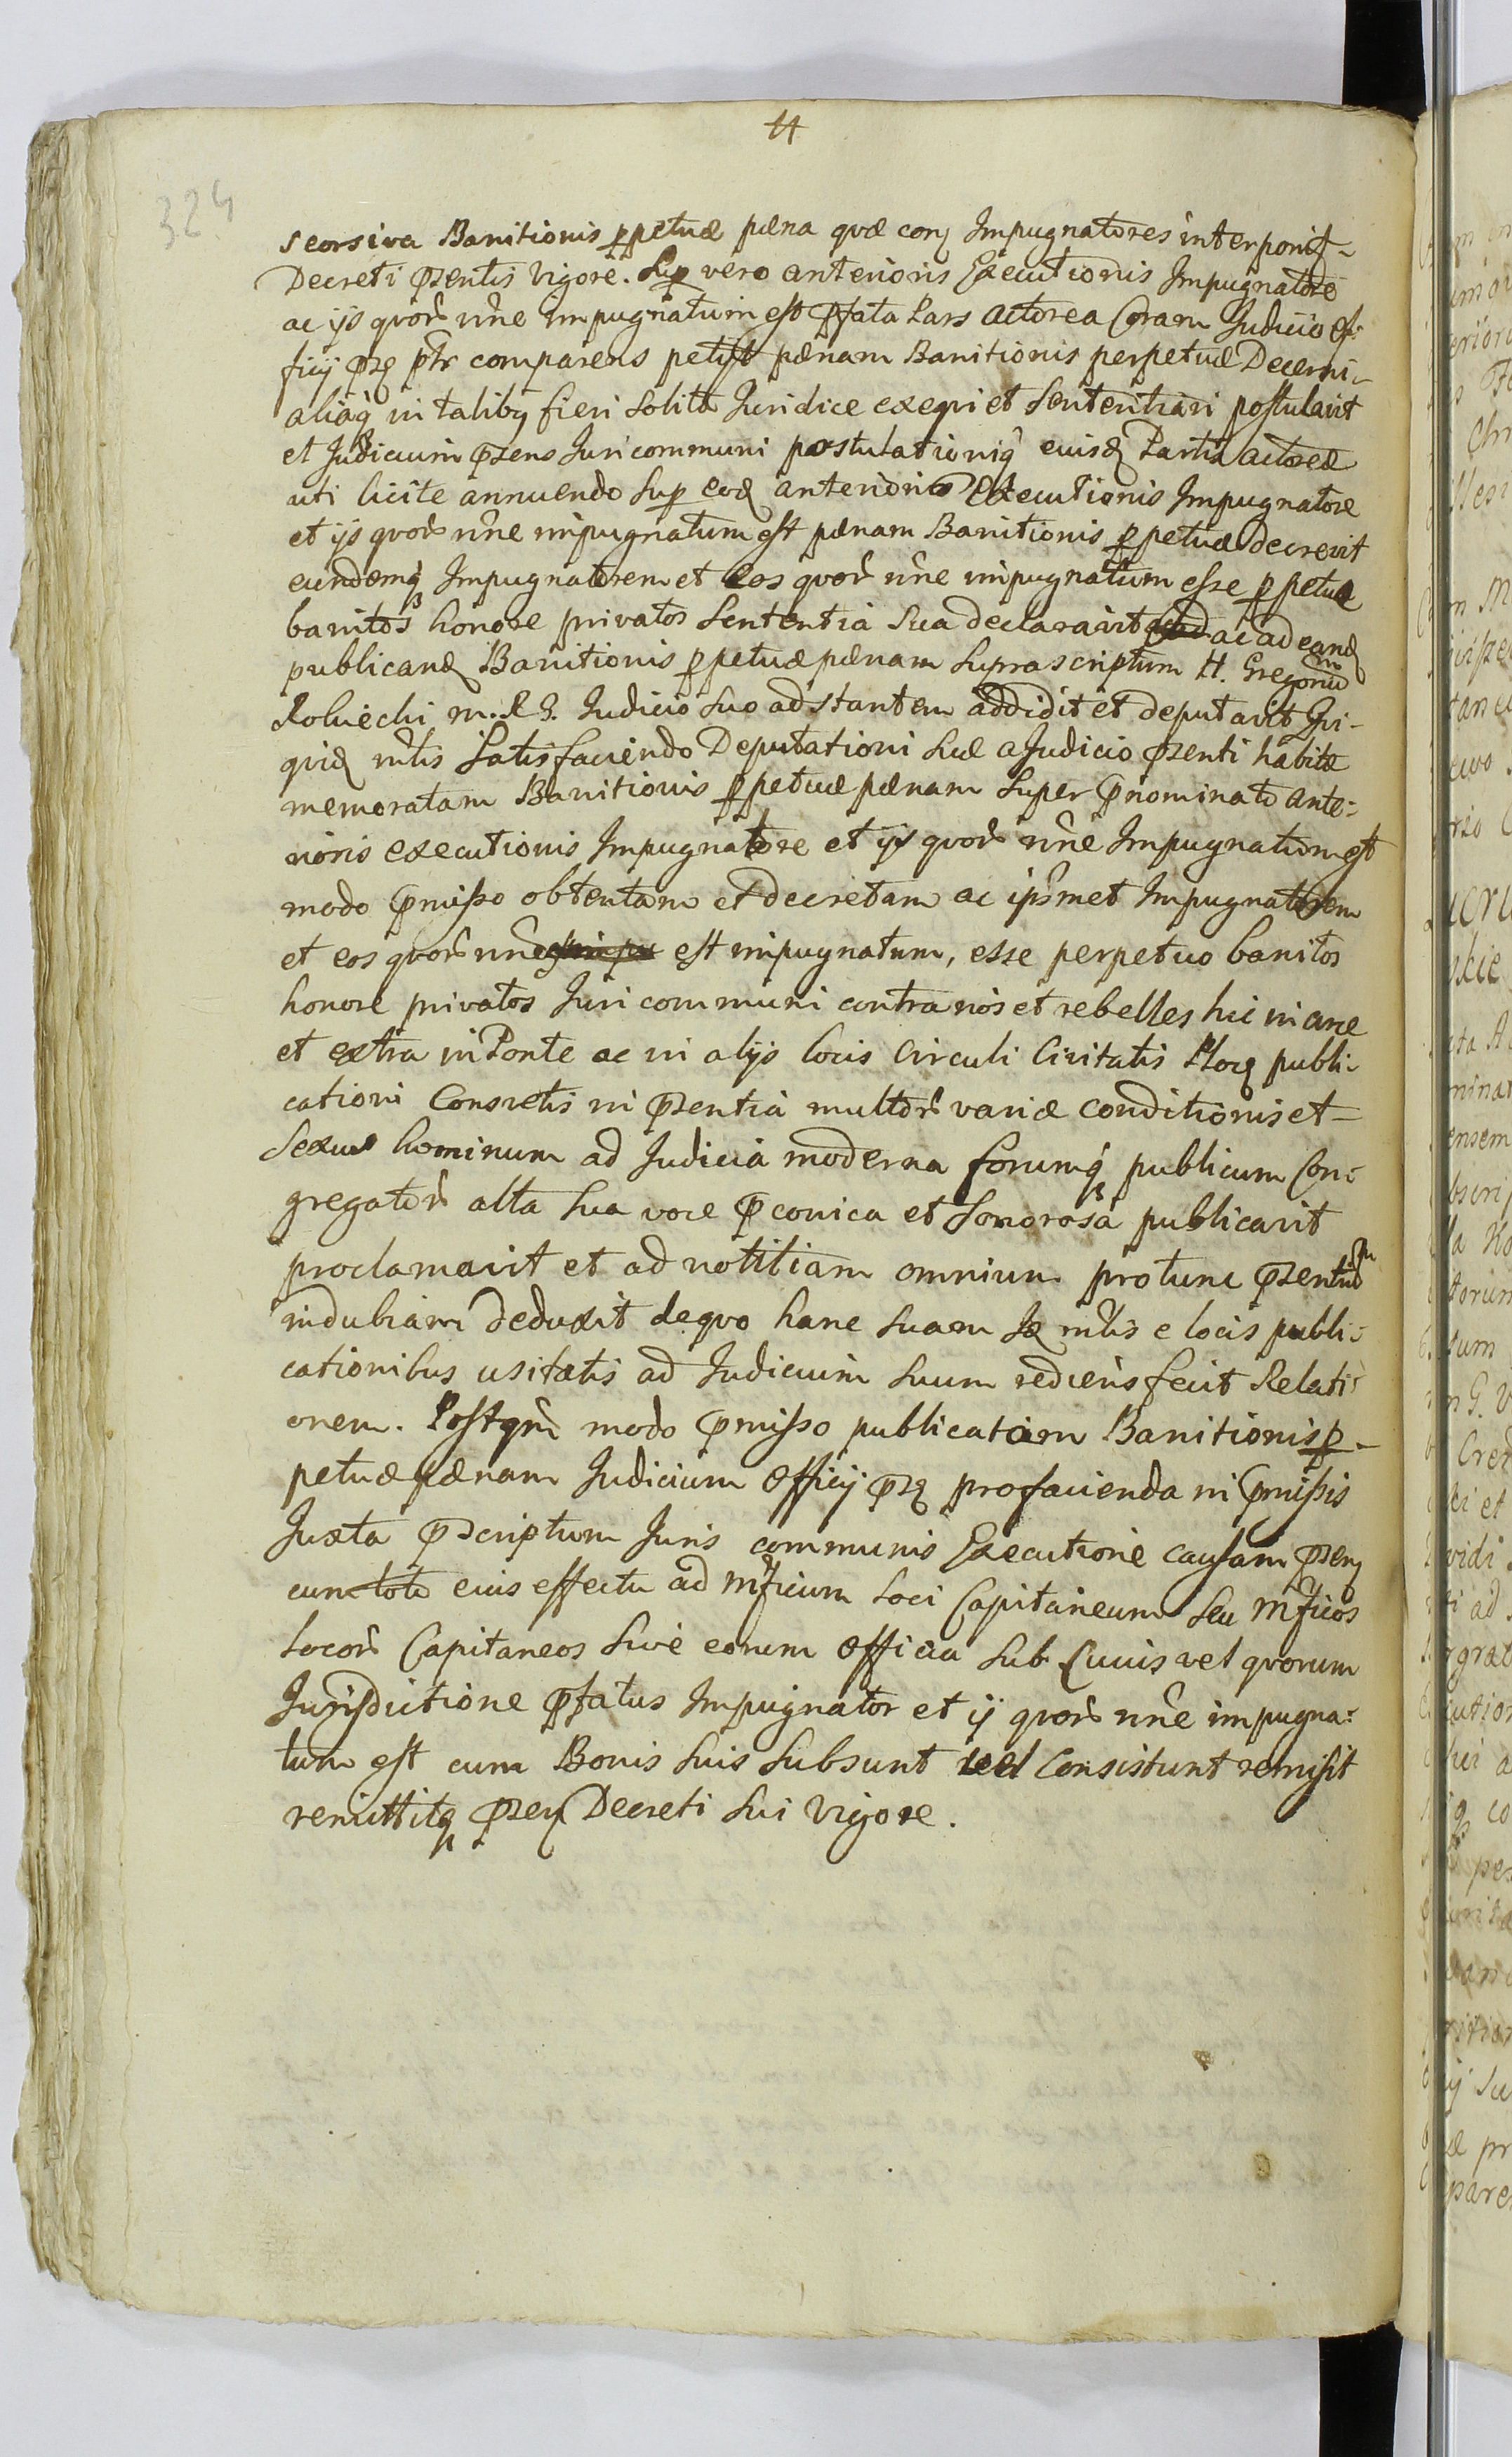 11
324
seorsiva Banitionis ppetuæ pæna quæ conq Impugnatores interponit-
Decreti pzentis Vigore. Sup vero anterioris Executionis Impugnatore
ac ijs quorũ nñe impugnatum est pfata Pars actorea Coram Judicio of-
ficij pzq pñr comparens petijt pænam Banitionis perpetuæ Decerni-
aliaq in talibq fieri solita Juridice exequi et Sententiari postulavit
et Judicium pzens Juri communi postulationiq eiusd Partis actoreæ
uti licite annuendo Sup eod anterioris Executionis Impugnatore
et ijs quorũ nñe impugnatum est pænam Banitionis ppetuæ decrevit
eundemq Impugnatorem et eos quorũ nñe impugnatum esse ppetua
banitos honore privatos Sententia Sua declaravit ac ad eand
publicand Banitionis ppetuæ pænam suprascriptum H. Gregorium
Roluiechi M.R.G. Judicio suo adstantem addidit et deputavit Qui-
quid mtis Satisfaciendo Deputationi Suæ a Judicio pzenti habitæ
memoratam Banitionis ppetuæ pænam super pnominato ante-
rioris executionis Impugnatore et ijs quorũ nñe Impugnatum est
modo pmisso obtentam et decretam ac ipsmet Impugnatorem
et eos quorũ nñe est impugnatum, esse perpetuo banitos
honore privatos Juri communi contrarios et rebelles hic in arce
et extra in Ponte ac in alijs locis Circuli Civitatis Plocq publi-
cationi Consvetis in pzentia multorũ variæ conditionis et-
Sexus hominum ad Judicia moderna forumq publicum Con-
gregatorũ alta Sua voce pconica et Sonorosa publicavit
proclamavit et ad notitiam omnium protunc pzentium
indubiam deduxit de quo hanc suam Id mtis e locis publi-
cationibus usitatis ad Judicium suum rediens fecit Relati-
onem. Postqm modo pmisso publicatam Banitionis p-
petuæ pænam Judicium Officij pzq pro facienda in pmissis
Juxta pzscriptum Juris communis Executione causam pzenq
cum toto eius effectu ad Mficum Loci Capitaneum seu Mficos
Locorũ Capitaneos Sive eorum Officia Sub Cuius vel quorum
Jurisdictione pfatus Impugnator et ij quorũ nñe impugna-
tum est cum Bonis suis Subsunt vel Consistunt remisit
remittitq pzenq Decreti Sui Vigore.